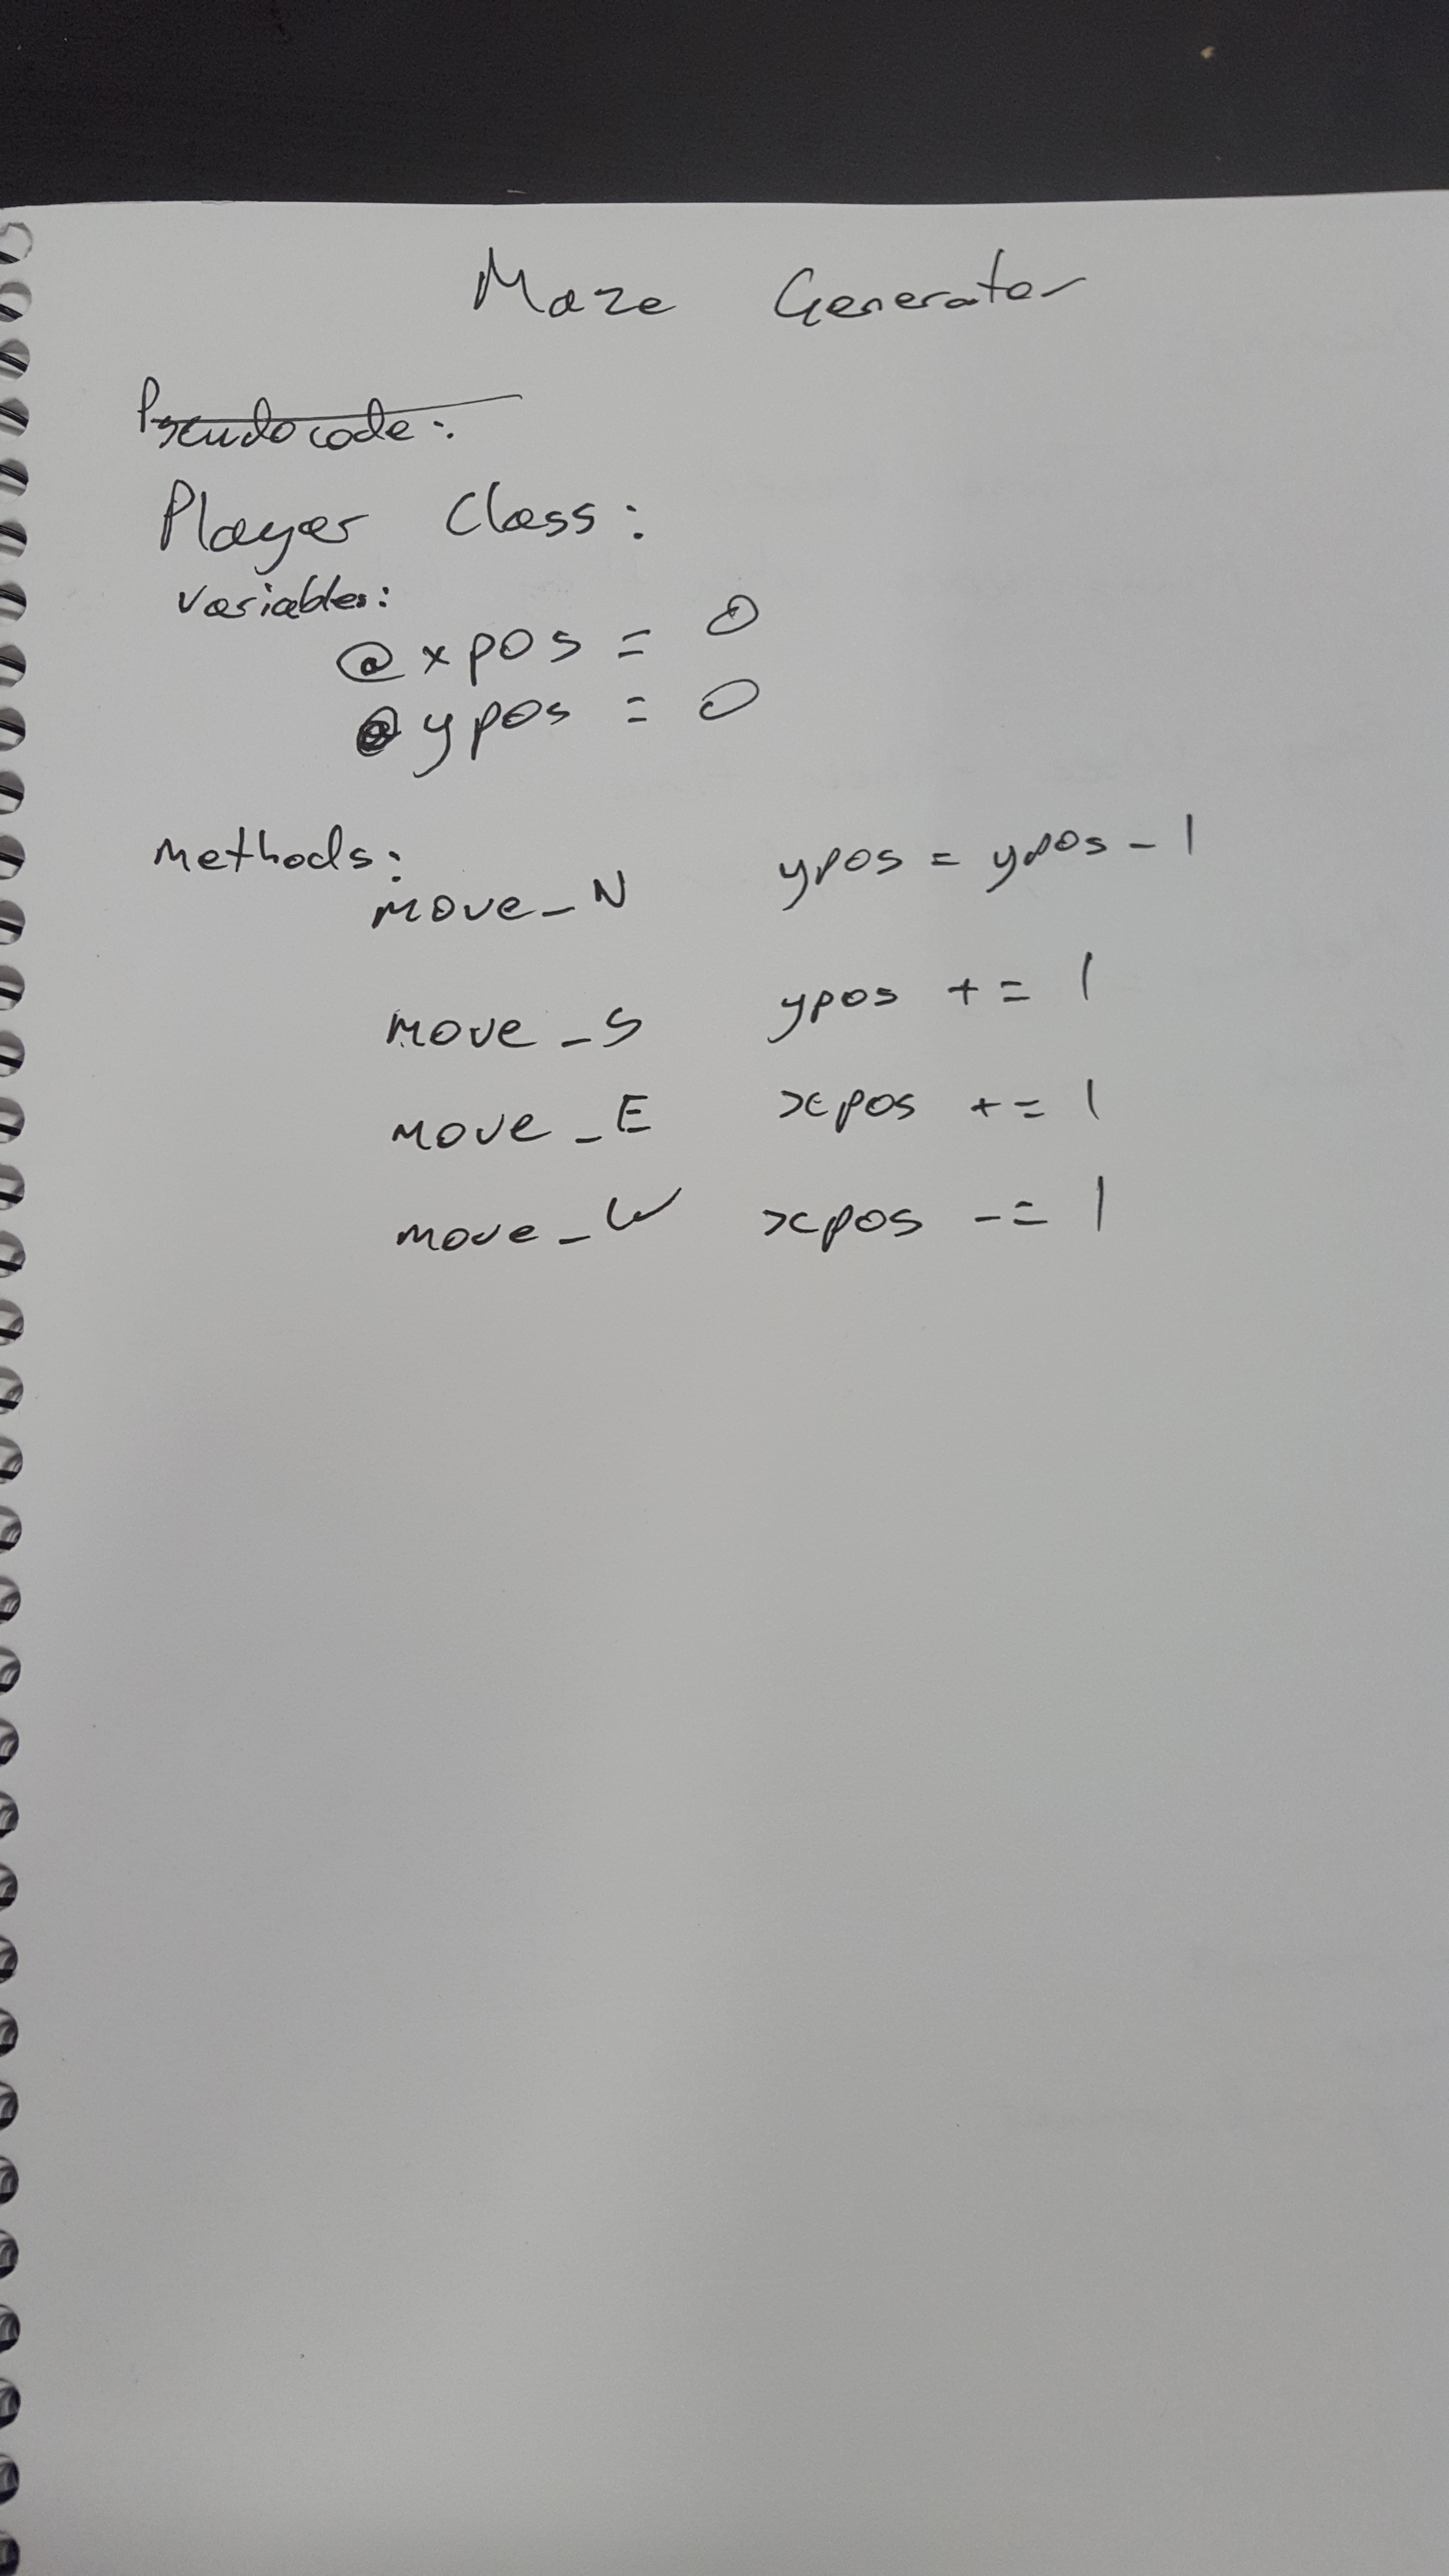 Maze Generator
Pseudocode:
Player Class:
variables:
@xpos = 0
@ypos = 0
Methods:
move_N ypos = ypos - 1
move_S ypos += 1
move_E xpos += 1
move_W xpos -= 1